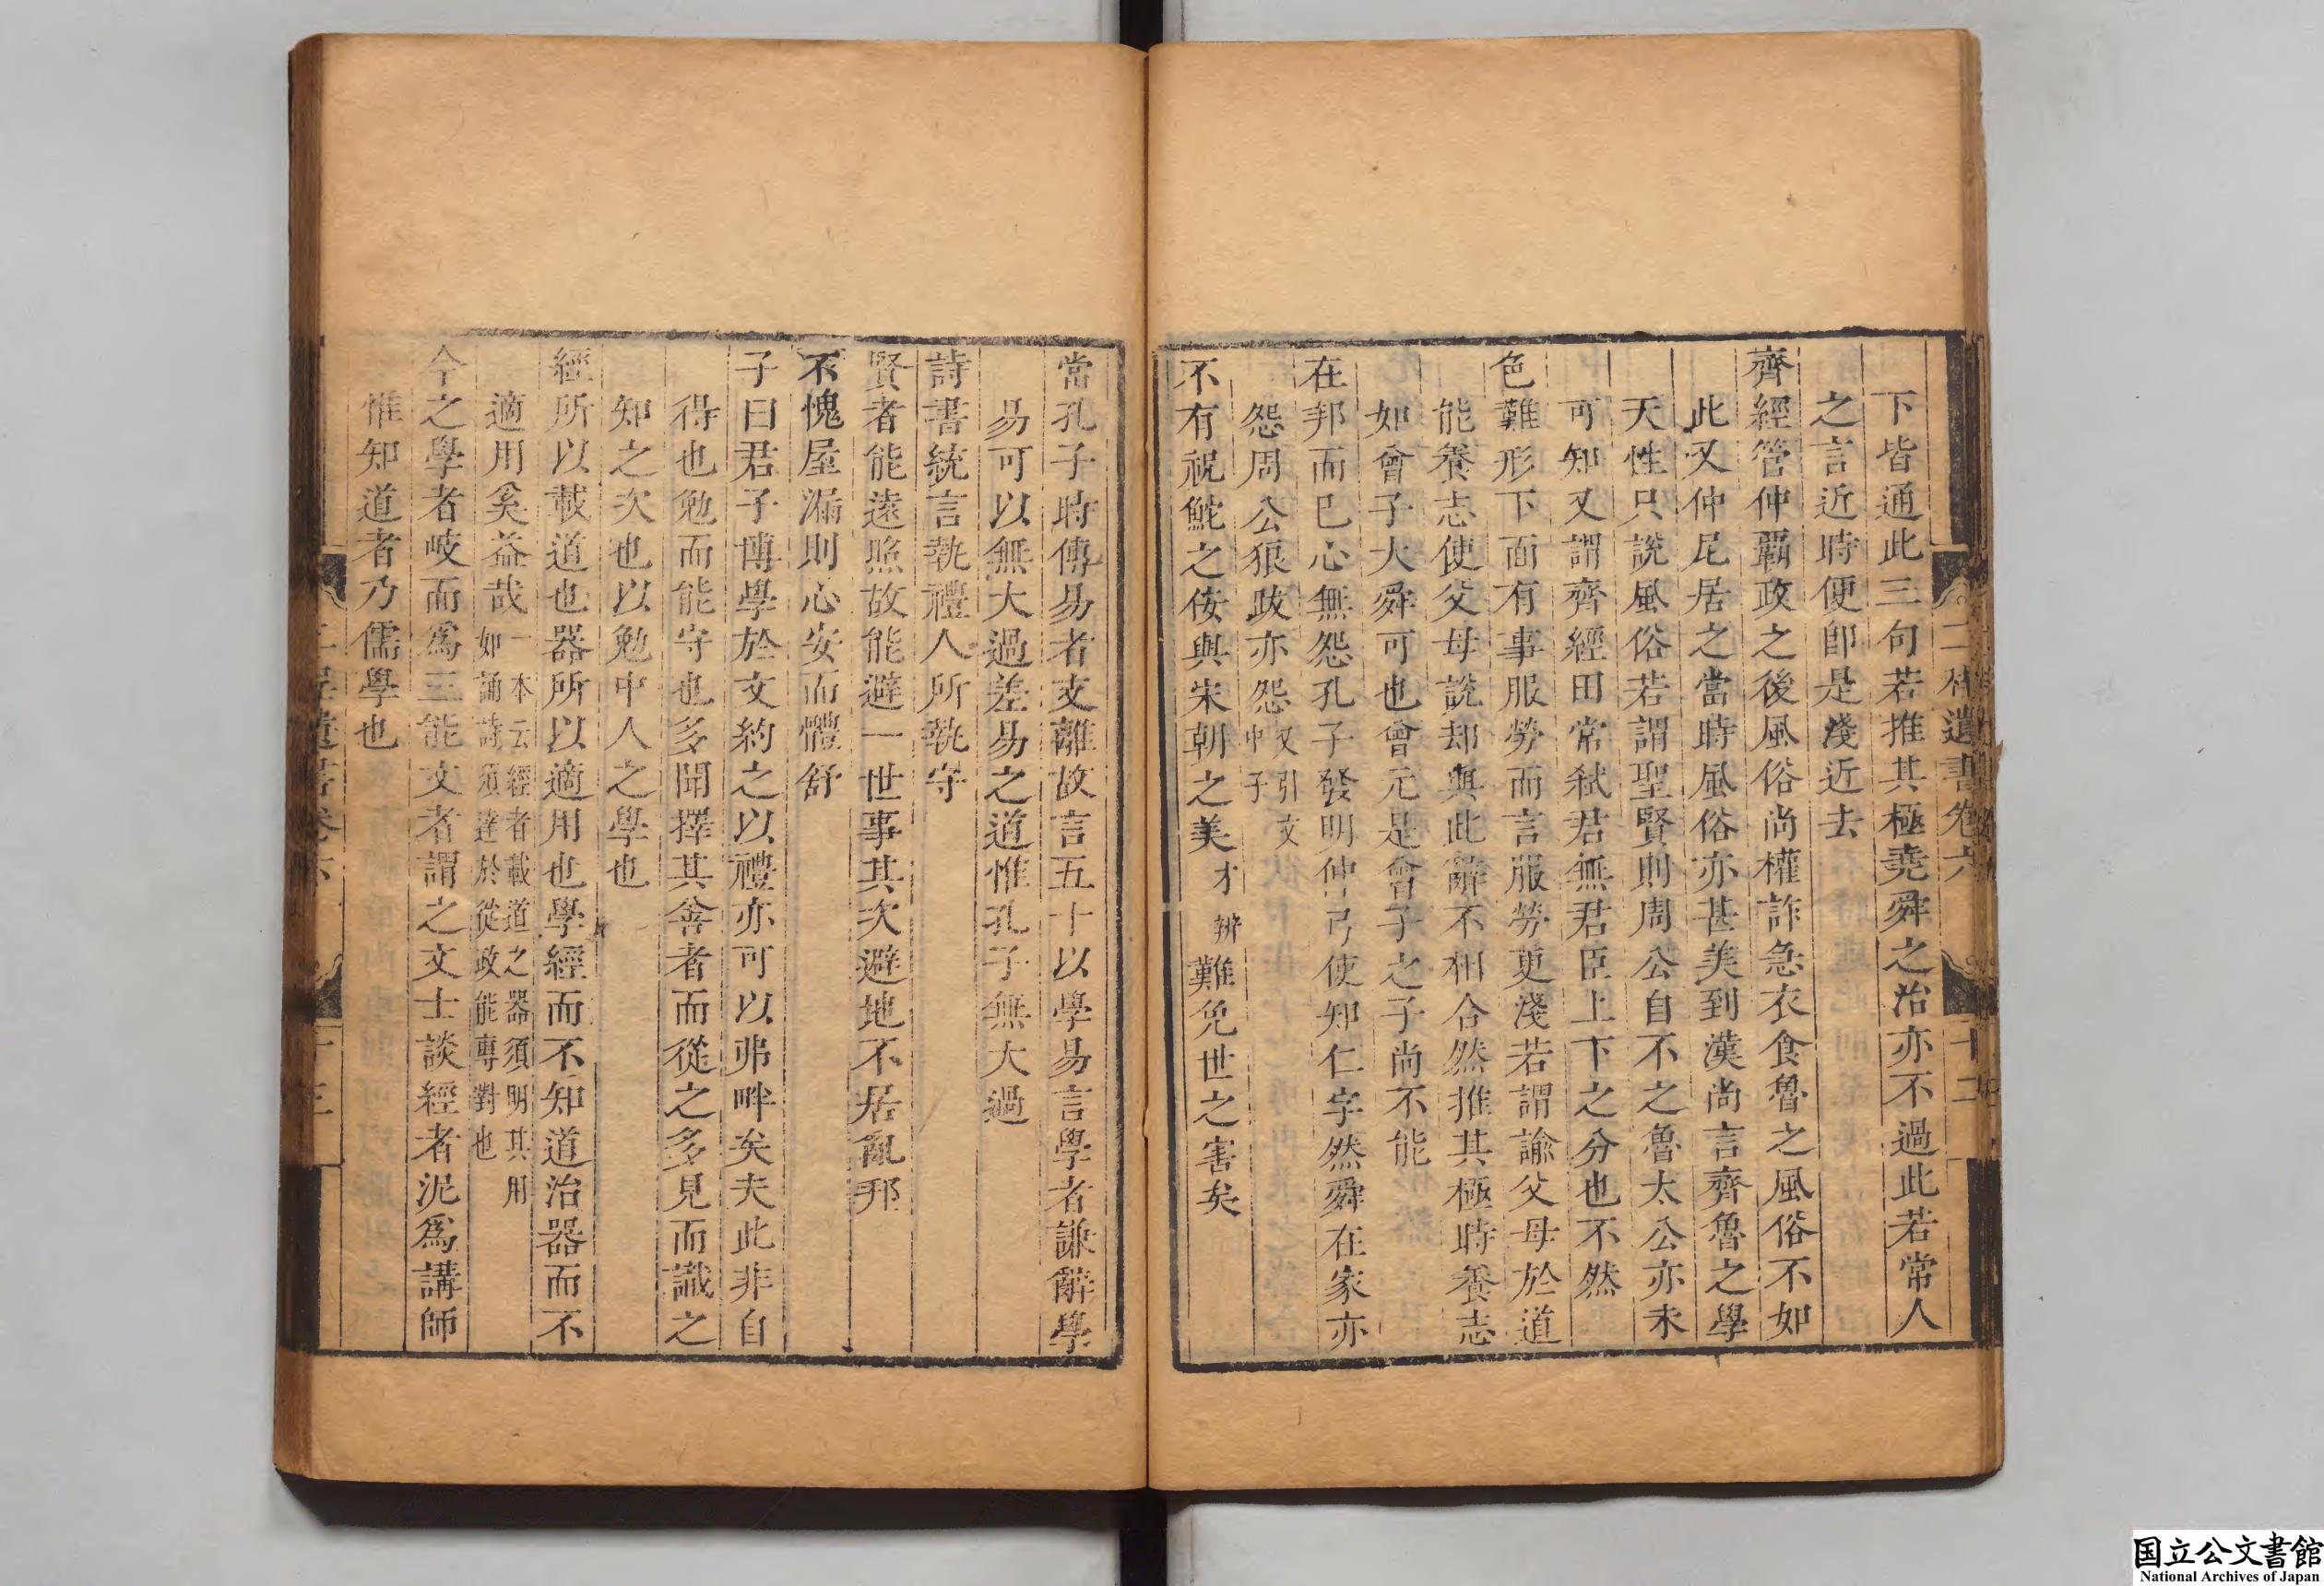 下皆通此三句若推其極堯舜之治亦不過此若常人
之言近時便卽是淺近去
齊經管仲霸政之後風俗尚權詐急衣食魯之風俗不如
此又仲尼居之當時風俗亦甚美到漢尚言齊魯之學
天性只說風俗若謂聖賢則周公自不之魯太公亦未
可知又謂齊經田常弑君無君臣上下之分也不然
色難形下面有事服勞而言服勞更淺若謂諭父母於道
能養志使父母說却與此辭不相合然推其極時養志
如曾子大舜可也曾元是曾子之子尚不能
在邦而巳心無怨孔子發明仲弓使知仁字然舜在家亦
怨周公狼跋亦怨
又引文
中子
不有祝鮀之佞與宋朝之美
才辨
難免世之害矣
二程遺書卷六
十二
當孔子時傳易者支離故言五十以學易言學者謙辭學
易可以無大過差易之道惟孔子無大過
詩書統言執禮人所執守
賢者能遠照故能避一世事其次避地不居亂邦
不愧屋漏則心安而體舒
子曰君子博學於文約之以禮亦可以弗畔矣夫此非自
得也勉而能守也多聞擇其善者而從之多見而識之
知之次也以勉中人之學也
經所以載道也器所以適用也學經而不知道治器而不
適用奚益哉
一本云經者載道之器須明其用
如誦詩須達於從政能專對也
今之學者岐而爲三能文者謂之文士談經者泥爲講師
惟知道者乃儒學也
二程遺書卷六
十三
国立公文書館
National Archives of Japan